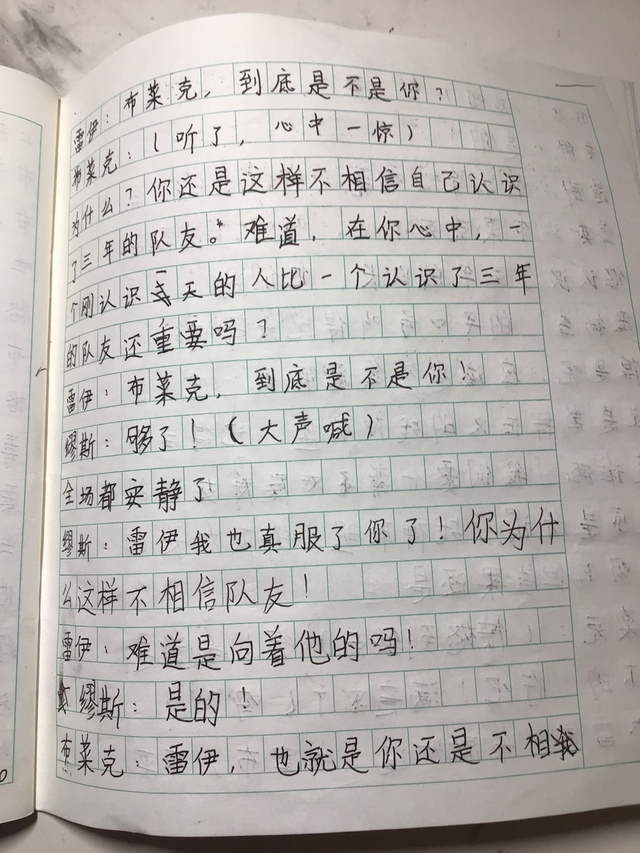 雷伊：布莱克，到底是不是你？
布莱克：（听了，心中一惊）
为什么？你还是这样不相信自己认识
了三年的队友。难道，在你心中，一
个刚认识天的人比一个认识了三年
的队友还重要吗？
雷伊：布莱克，到底是不是你！
缪斯：够了！（大声喊）
全场都安静了
缪斯：雷伊我也真服了你了！你为什
么这样不相信队友！
雷伊：难道是向着他的吗！
缪斯：是的！
布莱克：雷伊，也就是你还是不相我